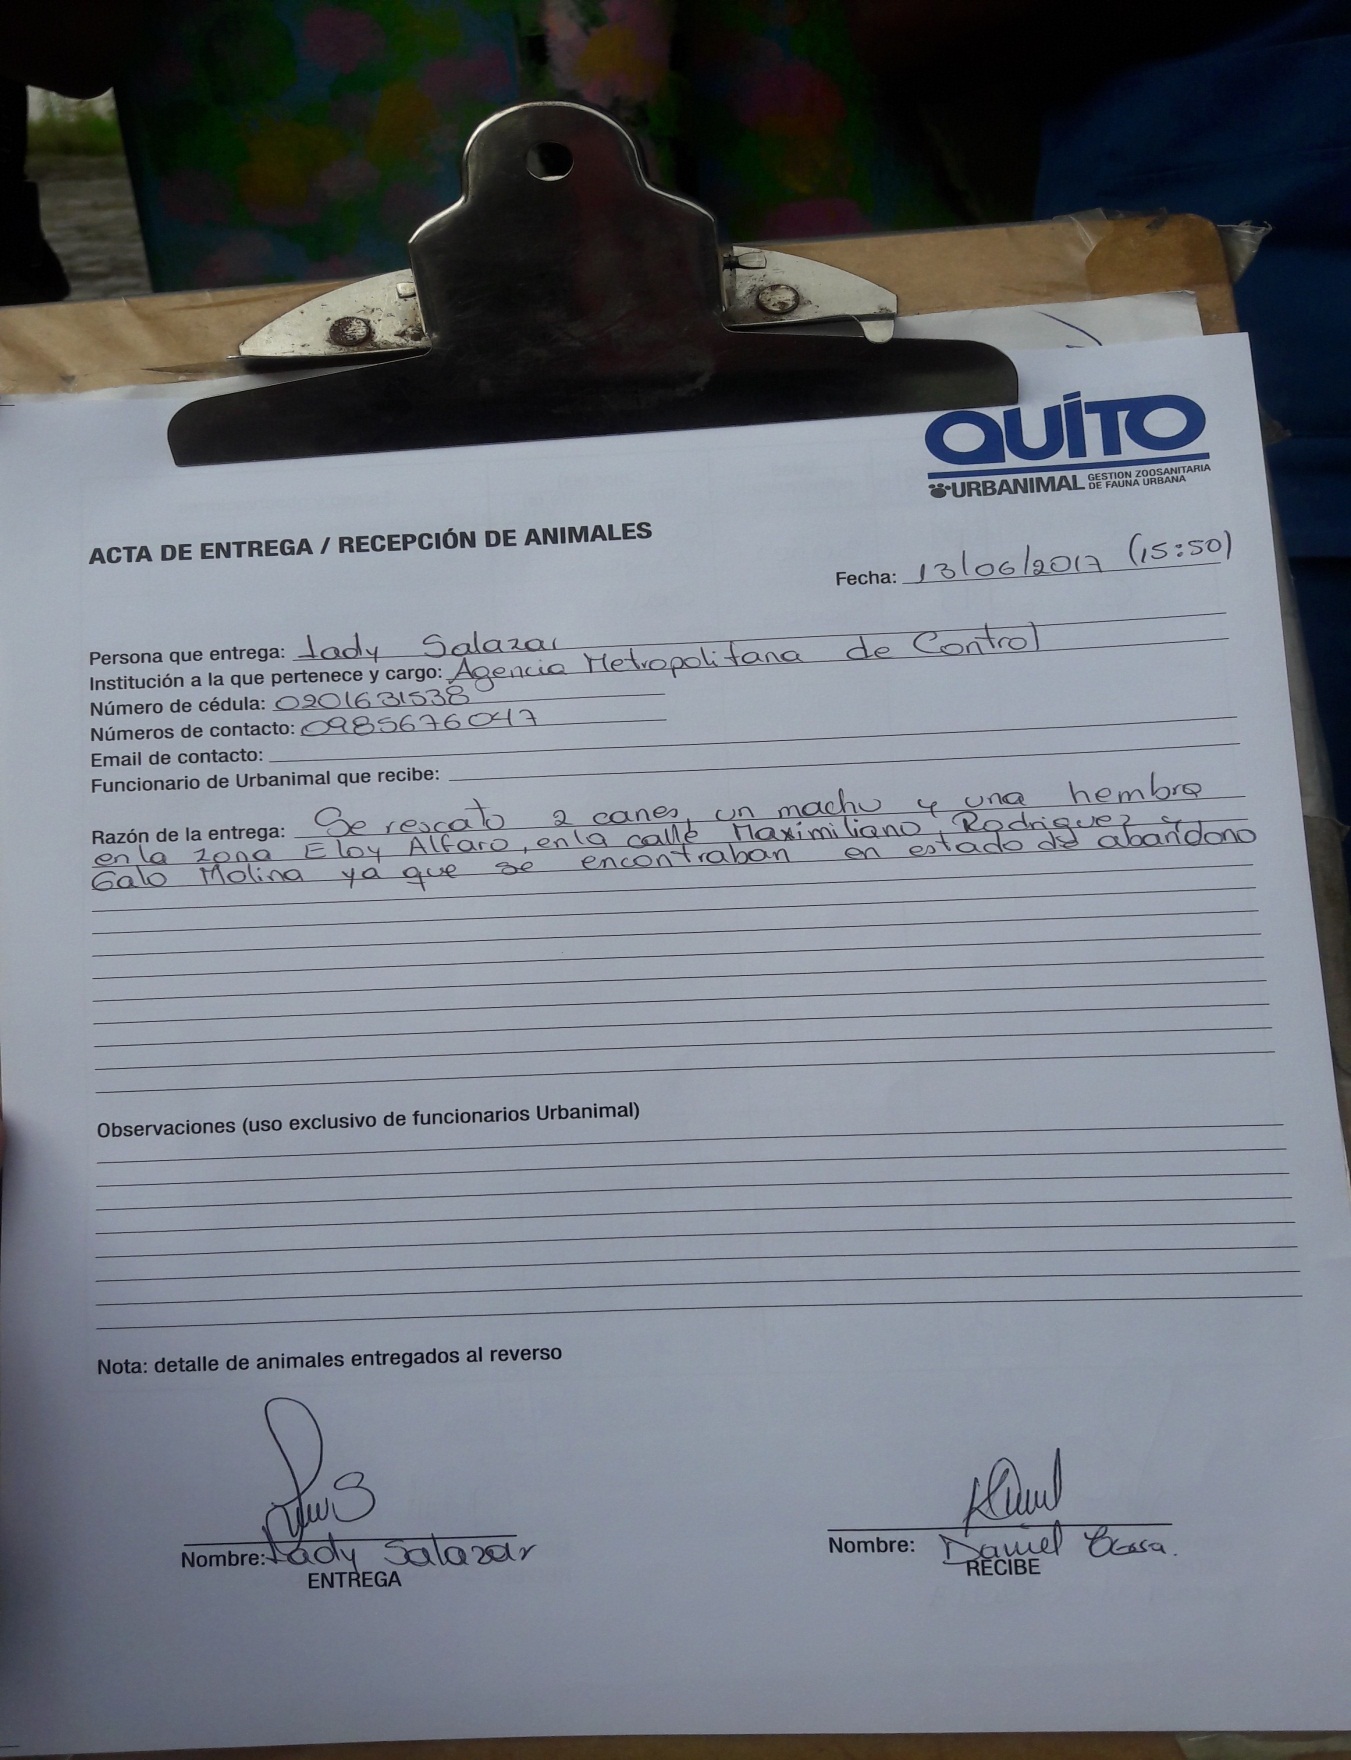 QUITO
URBANIMAL GESTION ZOOSANITARIA
DE FAUNA URBANA
ACTA DE ENTREGA / RECEPCIÓN DE ANIMALES
Fecha: 13/06/2017 (15:50)
Persona que entrega: Lady Salazar
Institución a la que pertenece y cargo: Agencia Metropolitana de Control
Número de cédula: 0201631538
Números de contacto: 0985676047
Email de contacto:
Funcionario de Urbanimal que recibe:
Razón de la entrega: Se rescato 2 canes, un macho y una hembra
en la zona Eloy Alfaro, en la calle Maximiliano Rodriguez y
Galo Molina ya que se encontraban en estado de abandono
Observaciones (uso exclusivo de funcionarios Urbanimal)
Nota: detalle de animales entregados al reverso
Nombre: Lady Salazar
ENTREGA
Nombre: Daniel
RECIBE